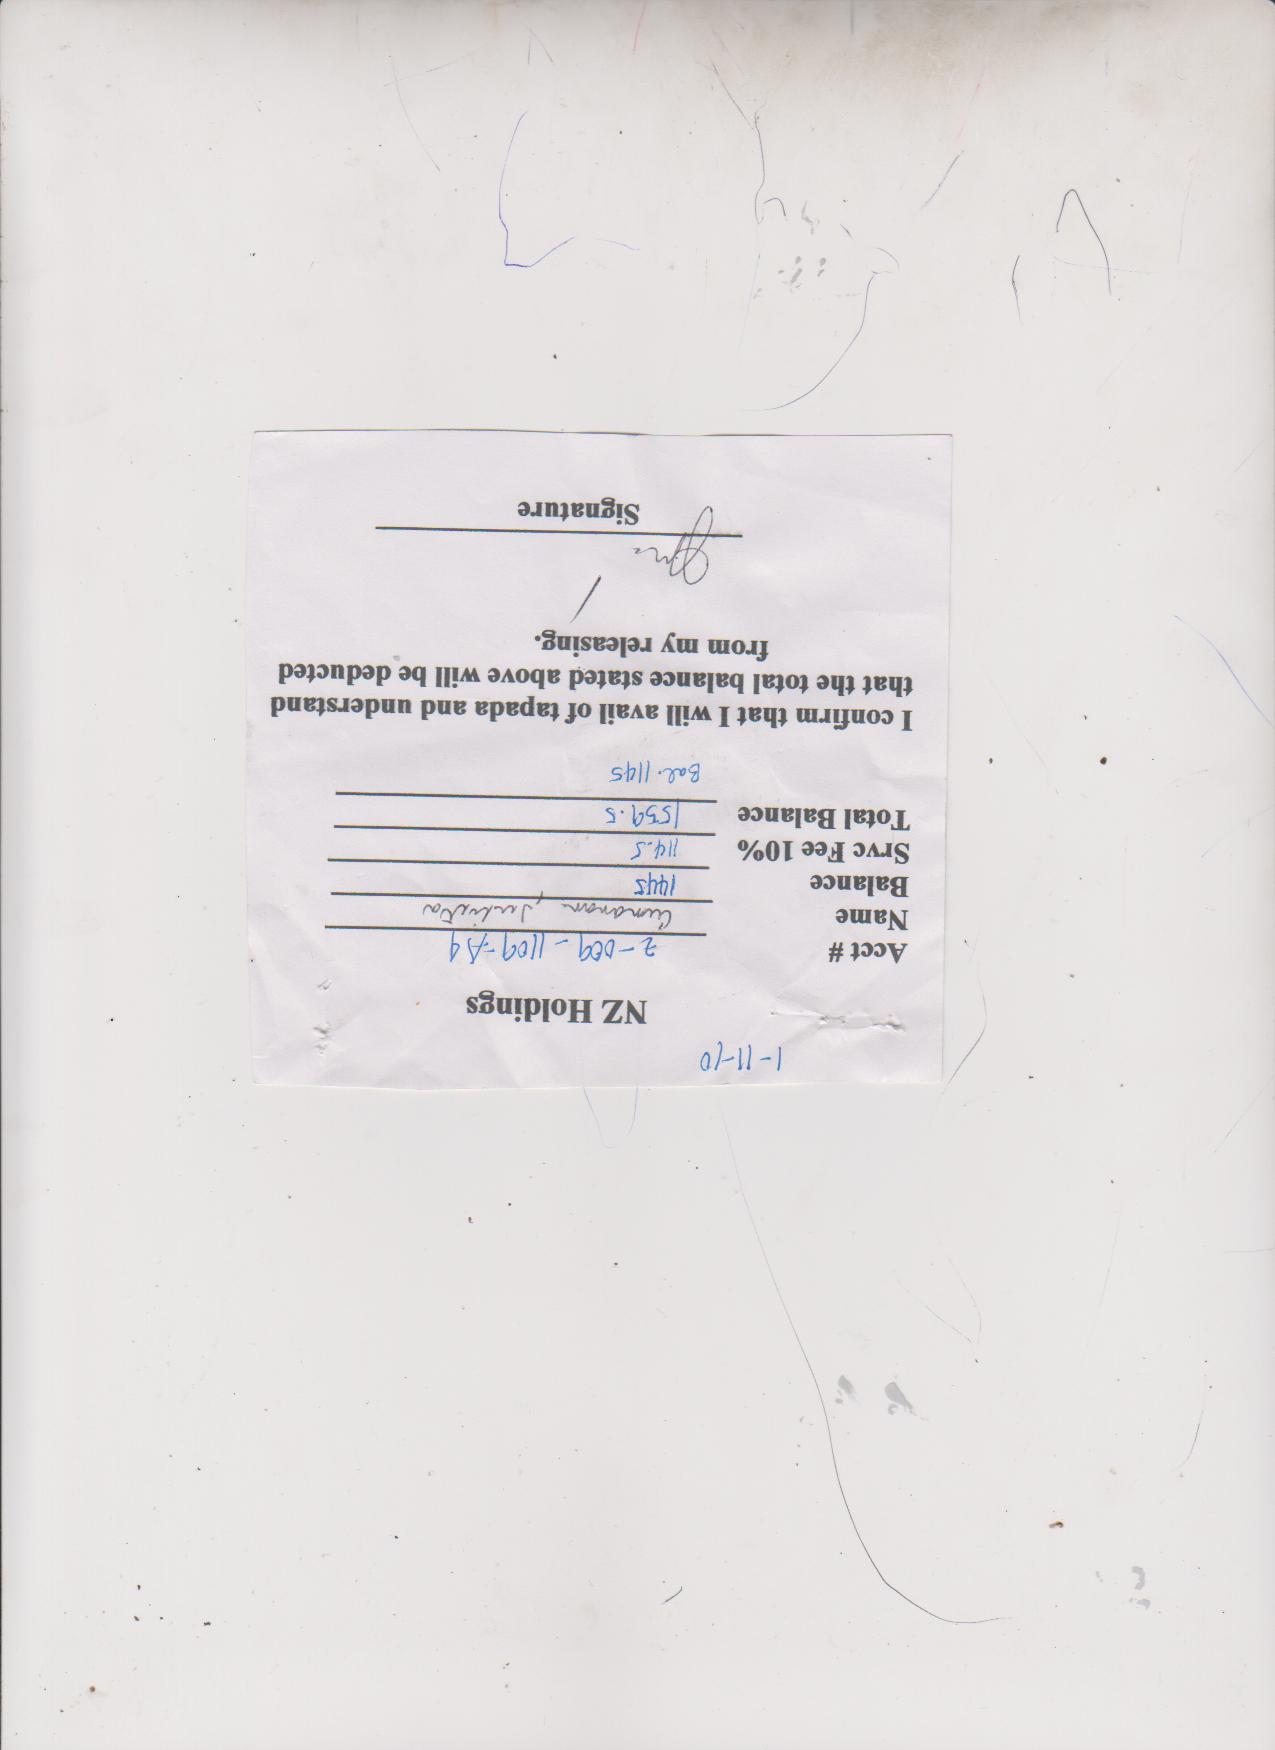 1-11-10
NZ Holdings
Acct # 2-009-1109-A9
Name
Balance 1445
Srvc Fee 10% 114.5
Total Balance 1559.5
Bal. 1145
I confirm that I will avail of tapada and understand
that the total balance stated above will be deducted
from my releasing.
Signature